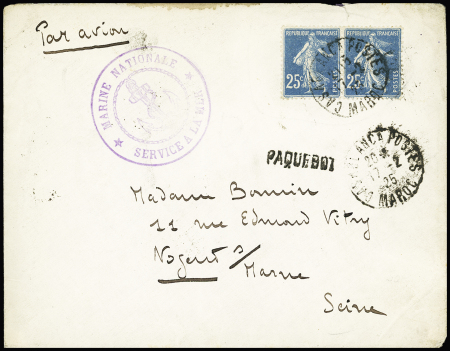 Par avion
REPUBLIQUE FRANÇAISE REPUBLIQUE FRANÇAISE
25c POSTES 25c POSTES
MARINE NATIONALE
SERVICE A LA MER
CASABLANCA POSTES
MAROC
PAQUEBOT
CASABLANCA POSTES
25
MAROC
Madame
11 rue Edmond Vitry
Nogent s/ Marne
Seine